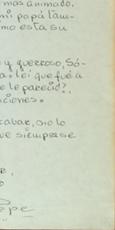 mas animado.
mi papá tam-
mo esta su
y querroso, Só-
a. leí que fué a
e le pareció?,
ciones.
cabar, sólo
ue siempre se
r,
o
Pepe